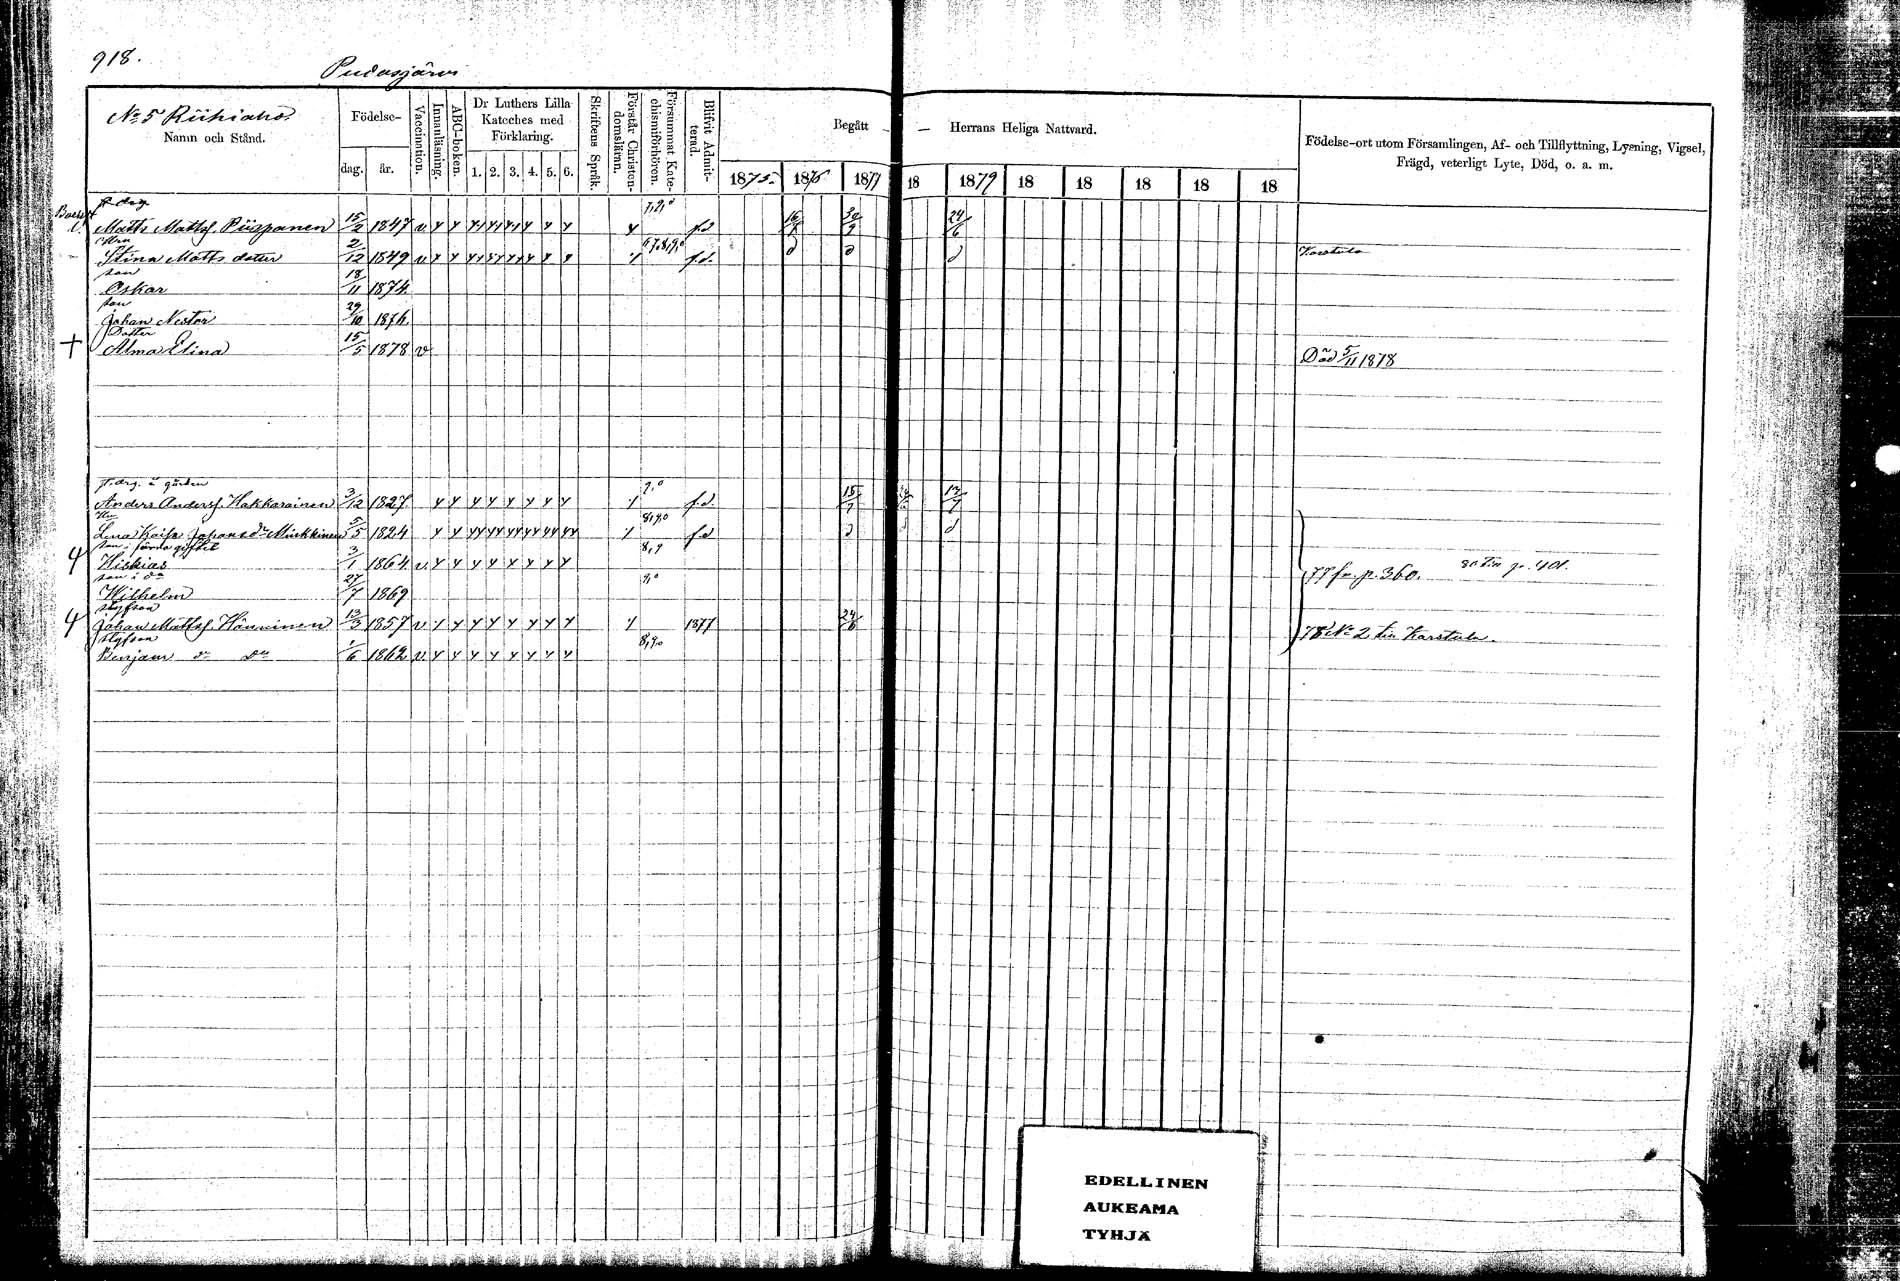 918.
Pudasjärvi
No 5 Riihiaho.
Namn och Stånd.
Födelse-
dag. år.
Vaccination.
Innanläsning.
ABC-boken.
Dr Luthers Lilla
Kateches med
Förklaring.
1. 2. 3. 4. 5. 6.
Skriftens Språk.
Förstår Christen-
domsläran.
Försummat Kate-
chismiförhören.
Blifvit Admit-
terad.
Begått — Herrans Heliga Nattvard.
1875. 1876 1877 18 1879 18 18 18 18 18
Födelse-ort utom Församlingen, Af- och Tillflyttning, Lysning, Vigsel,
Frägd, veterligt Lyte, Död, o. a. m.
Matts Mattsf. Piispanen 15/2 1847 v. f.d 16/8 30/9 24/6
Stina Matts dotter 2/12 1849 v. f.d. d d d Karstula
son
Oskar 18/11 1874.
son
Johan Nestor 29/10 1876.
Dotter
+ Alma Elina 15/5 1878 v Död 5/11 1878
Anders Andersf. Hakkarainen 3/12 1827. f.d. 15/7 13/7
Lena Kaisa Johansdr Minkkinen 5/5 1824 f.d d d d
son i förra giftet 8,9
Hiskias 3/1 1864 v. 77 fr. p. 360. 80 till p. 401.
son i do
Wilhelm 27/7 1869
styfson
Johan Mattsf. Hänninen 13/3 1857 v 1877 24/6 78 No 2 till Karstula.
styfson
Benjam do do 1/6 1862 v.
EDELLINEN
AUKEAMA
TYHJÄ